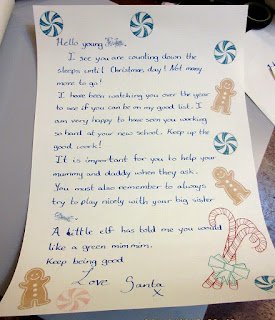 Hello young
I see you are counting down the
sleeps until Christmas day! Not many
more to go!
I have been watching you over the year
to see if you can be on my good list. I
am very happy to have seen you working
so hard at your new school. Keep up the
good work!
It is important for you to help your
mummy and daddy when they ask.
You must also remember to always
try to play nicely with your big sister
A little elf has told me you would
like a green mim mim.
Keep being good
Love Santa
x